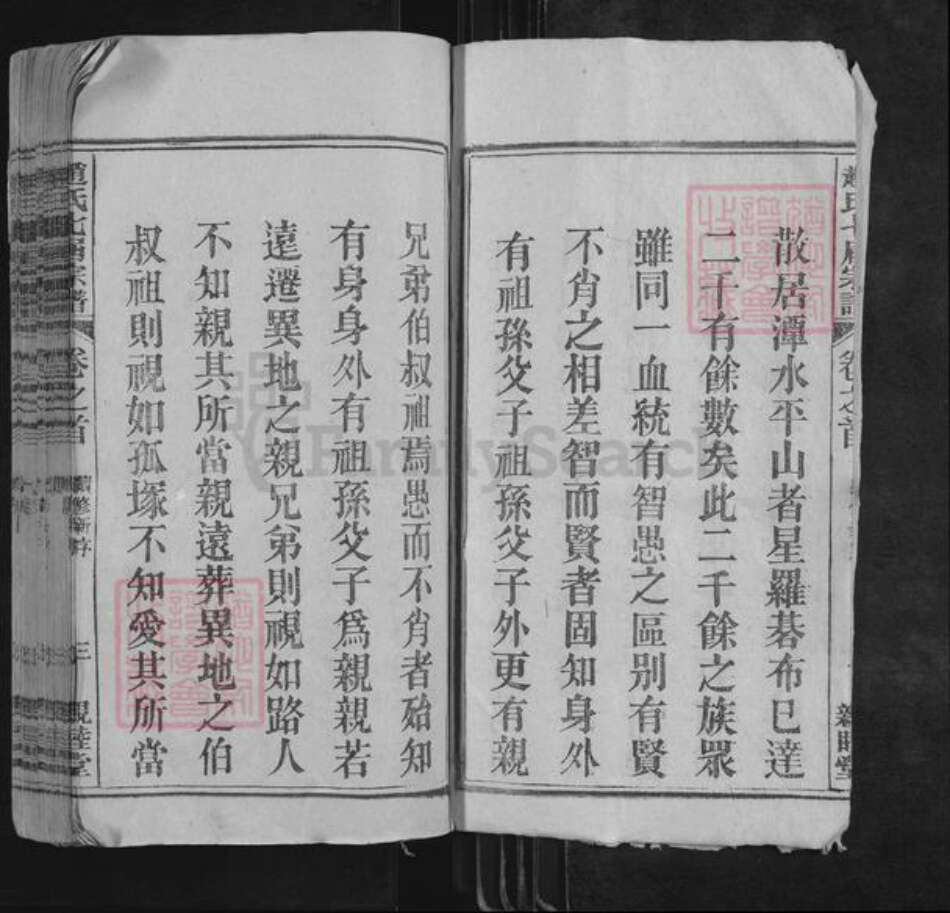 散居潭水平山者星羅碁布巳達
二千有餘數矣此二千餘之族眾
雖同一血統有智愚之區別有賢
不肖之相差智而賢者固知身外
有祖孫父子祖孫父子外更有親
兄弟伯叔祖焉愚而不肖者殆知
有身身外有祖孫父子為親親若
遠遷異地之親兄弟則視如路人
不知親其所當親遠葬異地之伯
叔祖則視如孤塚不知愛其所當
趙氏七屆宗譜
卷之首
續修新序
三
親睦堂
趙氏七屆宗譜
卷之首
親睦堂
FamilySearch